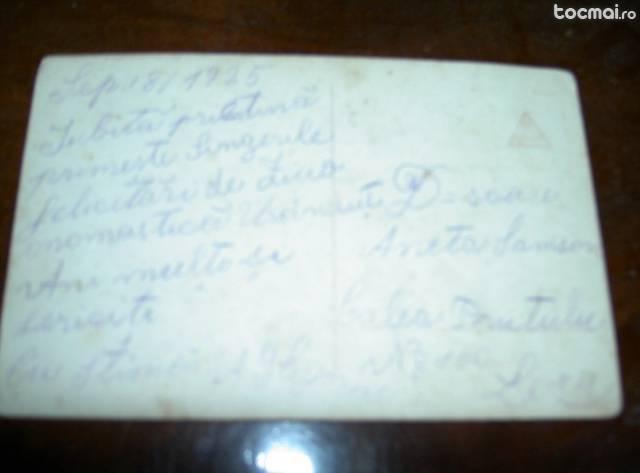 tocmai.ro
Sep. 18/1925
Iubită prietenă
primește sincerile
felicitări de ziua
onomastică Urându-ți
Ani mulți și
fericiți
Cu stimă
D-șoarei
Aneta Samson
Calea
No 100